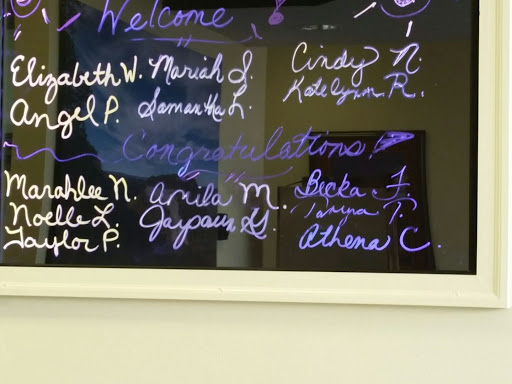 Welcome
Elizabeth W. Mariah S. Cindy N.
Angel P. Samantha L. Katelynn R.
Congratulations!
Marahlee N. Amila M. Becka F.
Noelle L. T.
Taylor P. Athena C.